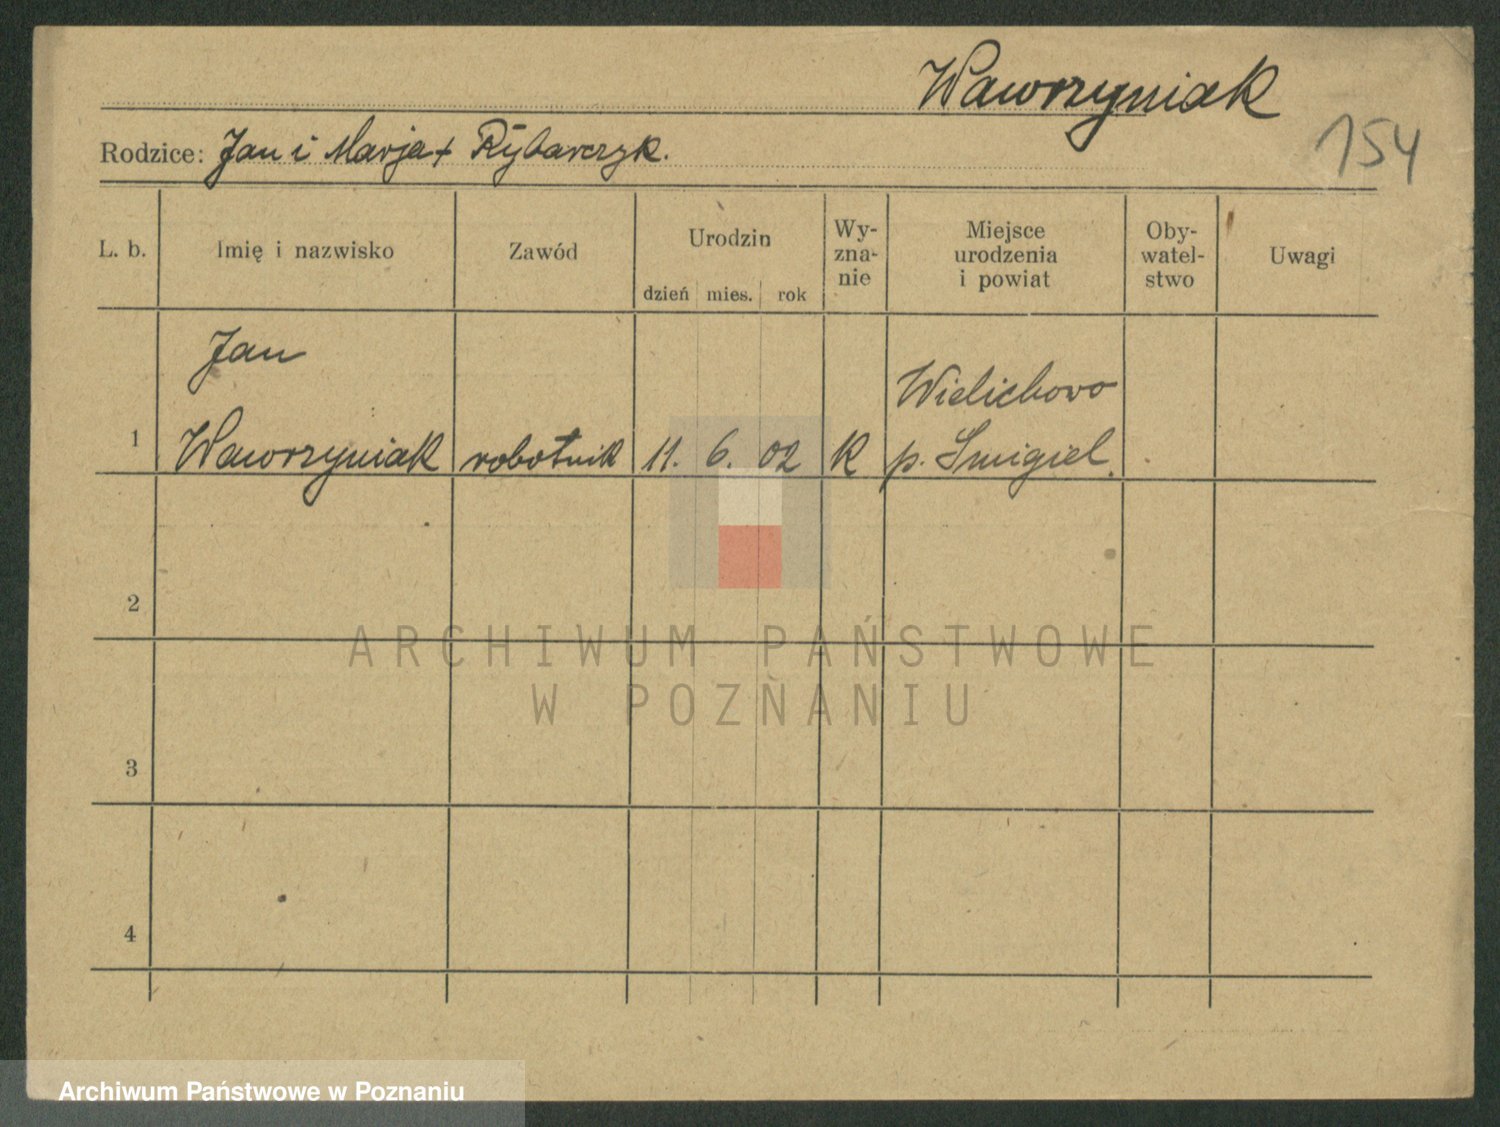 Wawrzyniak
154
Rodzice: Jan i Marja + Rybarczyk.
L. b.
Imię i nazwisko
Zawód
Urodzin
dzień mies. rok
Wy-
zna-
nie
Miejsce
urodzenia
i powiat
Oby-
watel-
stwo
Uwagi
1
Jan
Wawrzyniak
robotnik
11. 6. 02
K
Wielichowo
p. Śmigiel.
2
3
4
ARCHIWUM PAŃSTWOWE
W POZNANIU
Archiwum Państwowe w Poznaniu